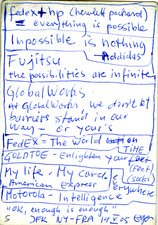 Fedex + hp (hewlett packard)
= everything is possible
Inpossible is nothing
Addidas
Fujitsu
the possibilities are infinite
Global Works.
At GlobalWorks we don't let
barriers stand in our
way – or your's
FedEx – The World on TIME
GOLDTOE – Enlighten your feet
(Foot)
(Socks)
My life. My card.
American express
everywhere
Motorola – Intelligence
"OK, enough is enough"
5 JFK NY–FRA 14 V 05